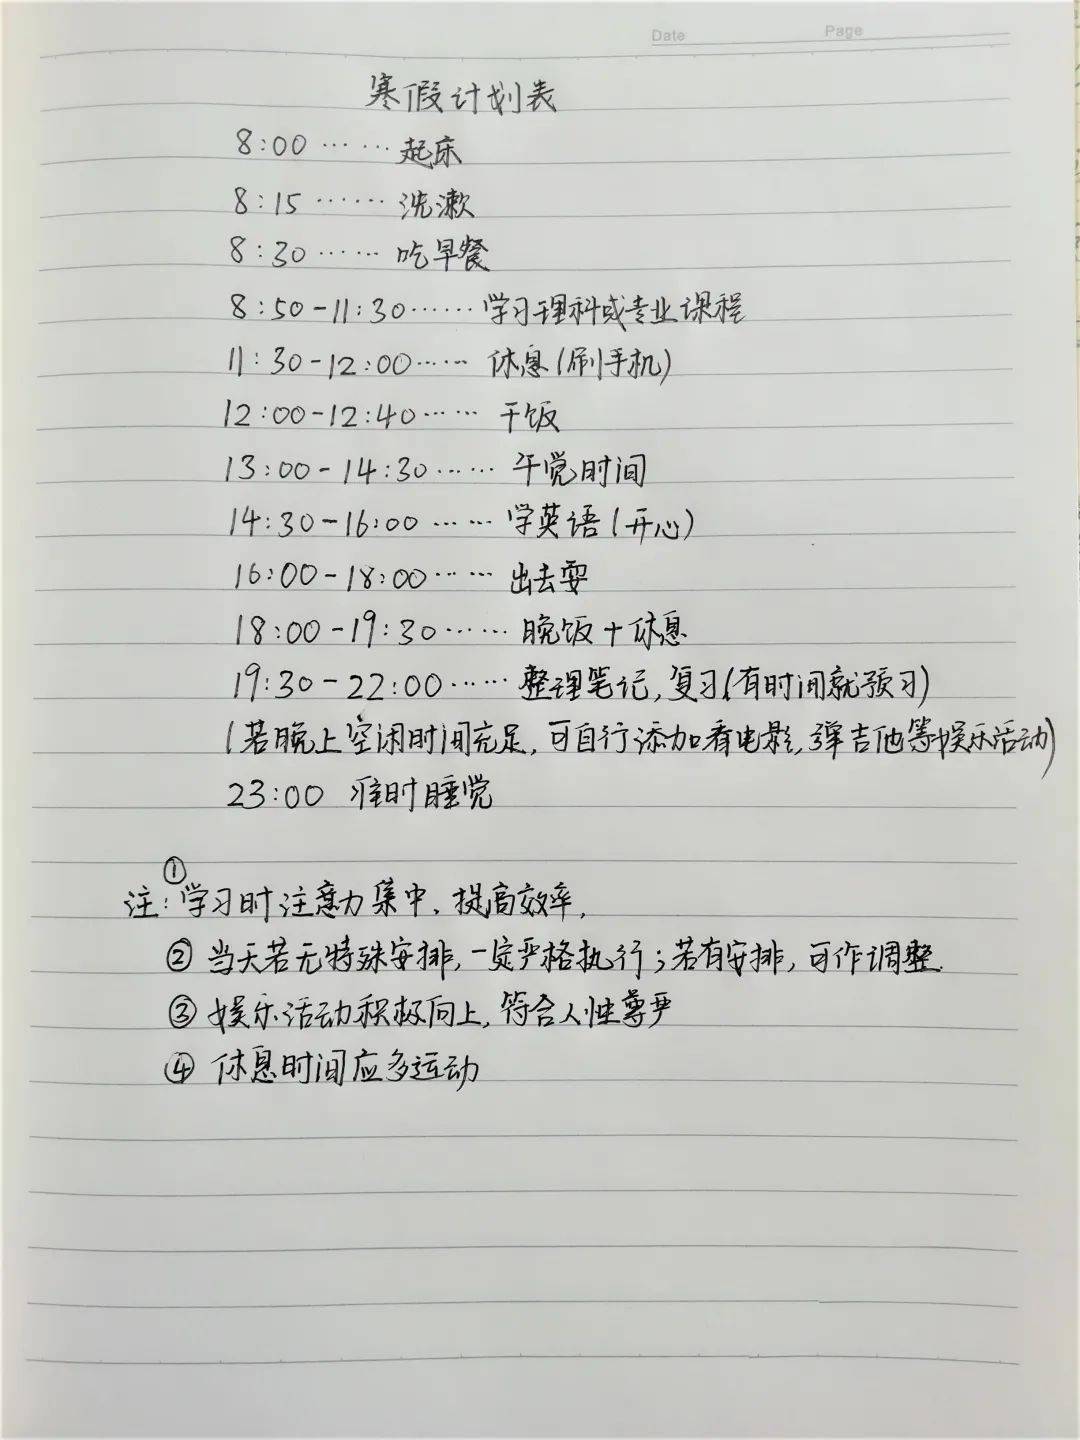 Date Page
寒假计划表
8:00 …… 起床
8:15 …… 洗漱
8:30 …… 吃早餐
8:50-11:30 …… 学习理科或专业课程
11:30-12:00 …… 休息(刷手机)
12:00-12:40 …… 干饭
13:00-14:30 …… 午觉时间
14:30-16:00 …… 学英语(开心)
16:00-18:00 …… 出去耍
18:00-19:30 …… 晚饭+休息
19:30-22:00 …… 整理笔记,复习(有时间就预习)
(若晚上空闲时间充足,可自行添加看电影,弹吉他等娱乐活动)
23:00 准时睡觉
注:①学习时注意力集中、提高效率,
②当天若无特殊安排,一定严格执行;若有安排,可作调整.
③娱乐活动积极向上,符合人性尊严
④休息时间应多运动